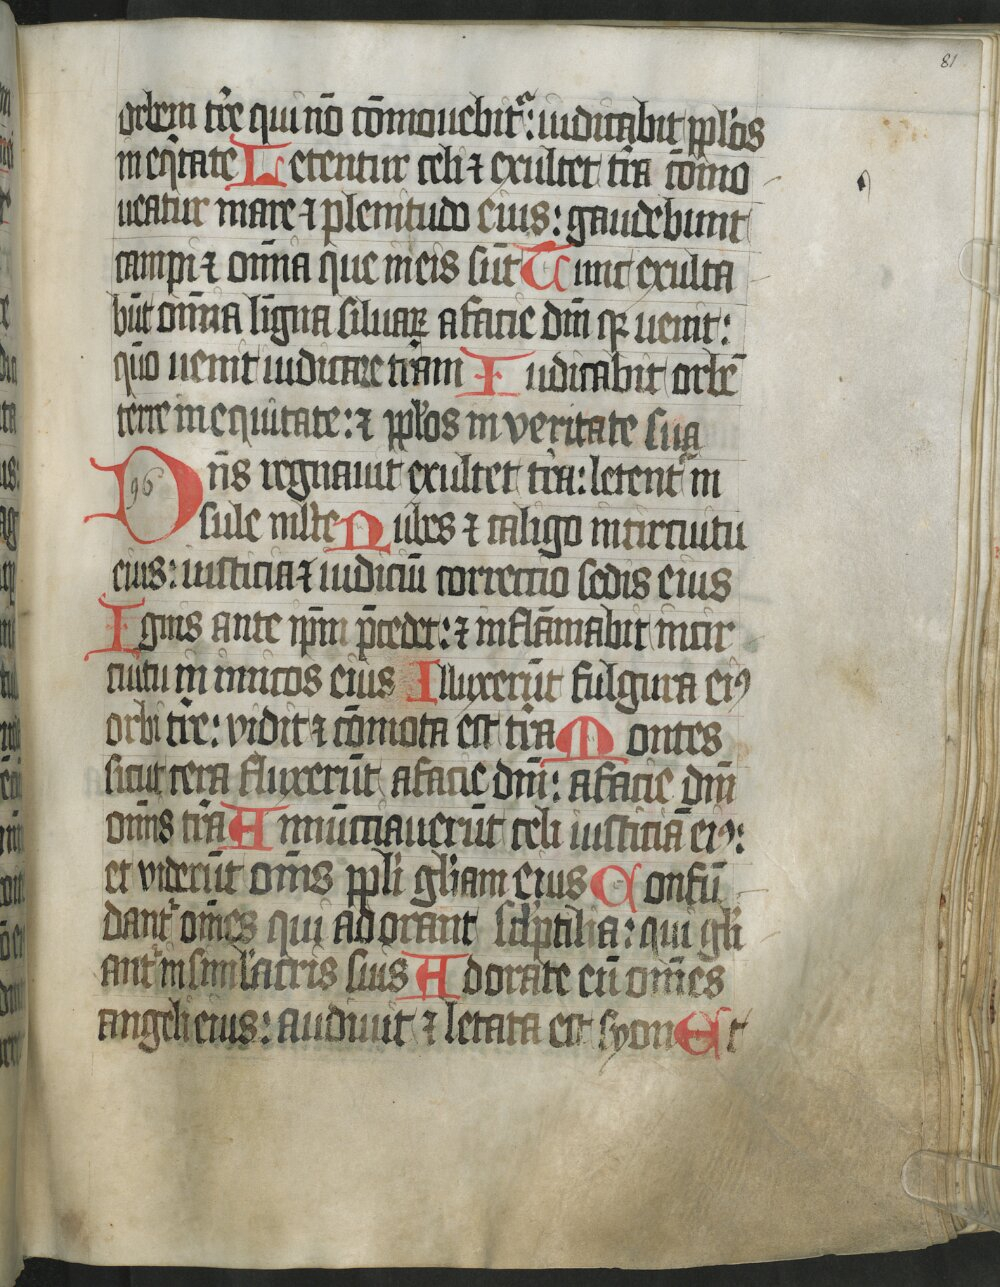 81
orbem tr̄e qui nō cōmouebit᷑: iudicabit pplōs
in eq̄tate Letentur celi ⁊ exultet tr̄a cōmo
ueatur mare ⁊ plenitudo eius: gaudebunt
campi ⁊ om̄ia que in eis sūt Tunc exulta
būt om̄ia ligna siluaꝝ a facie dn̄i qꝛ uenit:
qm̄o uenit iudicare tr̄am Iudicabit orbē
terre in equitate: ⁊ pplōs in veritate sua
96
Dn̄s regnauit exultet tr̄a: letent᷑ in
sule ml̄te Nubes ⁊ caligo in circuitu
eius: iusticia ⁊ iudiciū correctio sedis eius
Ignis ante ip̄m p̄cedet: ⁊ inflāmabit in cir
cuitu inimicos eius Illuxerūt fulgura eiꝰ
orbi tr̄e: vidit ⁊ cōmota est tr̄a Montes
sicut cera fluxerūt a facie dn̄i: a facie dn̄i
om̄is tr̄a Annūciauerūt celi iusticiā eiꝰ:
et viderūt om̄is ppl̄i gl̄iam eius Confū
dant᷑ om̄es qui adorant sclꝑtilia: qui gl̄i
ant᷑ in siml̄acris suis Adorate eū om̄es
angeli eius: audiuit ⁊ letata est syon Et